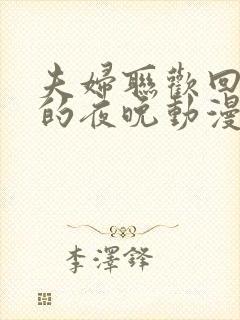 夫婦聯歡回
的夜晚動漫
李澤鋒